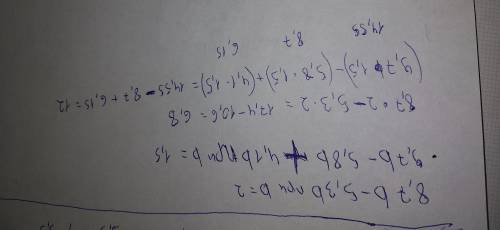 8,7b - 5,3b при b = 2
9,7b - 5,8b + 4,1b при b = 1,5
8,7 · 2 - 5,3 · 2 = 17,4 - 10,6 = 6,8
(9,7 · 1,5) - (5,8 · 1,5) + (4,1 · 1,5) = 14,55 - 8,7 + 6,15 = 12
14,55 8,7 6,15